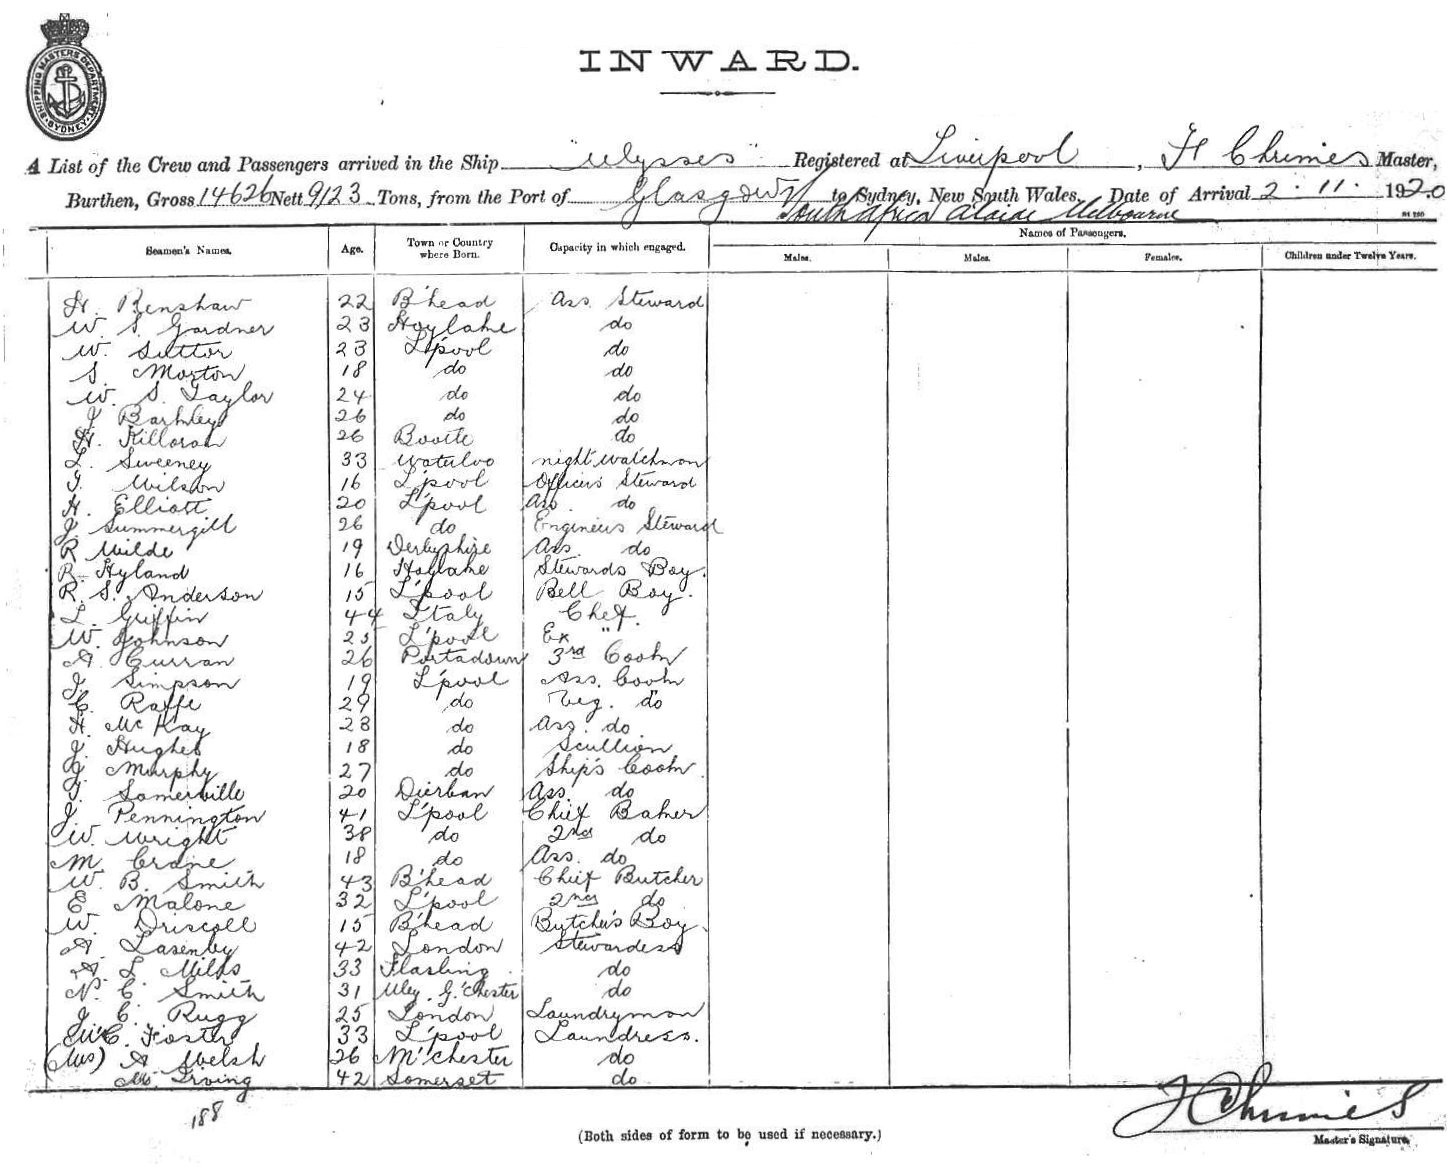 SHIPPING MASTERS DEPARTMENT SYDNEY
INWARD.
A List of the Crew and Passengers arrived in the Ship "Ulysses" Registered at Liverpool, H Chrimes Master,
Burthen, Gross 14626 Nett 9123 Tons, from the Port of Glasgow to Sydney, New South Wales, Date of Arrival 2.11.1920
South Africa Melbourne
Seamen's Names. Age. Town or Country where Born. Capacity in which engaged. Names of Passengers.
Males. Males. Females. Children under Twelve Years.
H. Renshaw 22 B'head Ass. Steward
W. S. Gardner 23 Hoylake do
W. Sutton 23 L'pool do
S. Morton 18 do do
W. S. Taylor 24 do do
J Barkley 26 do do
H. Killoran 26 Bootle do
L. Sweeney 33 Waterloo night watchman
T. Wilson 16 L'pool Officers Steward
H. Elliott 20 L'pool Ass. do
J. Summergill 26 do Engineers Steward
R Wilde 19 Derbyshire Ass. do
R. Hyland 16 Hoylake Stewards Boy.
R. S. Anderson 15 L'pool Bell Boy.
L. Griffin 44 Italy Chef.
W. Johnson 25 L'pool Ex "
A. Curran 26 Portadown 3rd Cook
J. Simpson 19 L'pool Ass. Cook
C. Raffe 29 do Veg. do
H. McKay 28 do Ass. do
J. Hughes 18 do Scullion
J. Murphy 27 do Ship's Cook
T. Somerville 20 Durban Ass. do
J. Pennington 41 L'pool Chief Baker
W. Wright 38 do 2nd do
M Crane 18 do Ass. do
W. B. Smith 43 B'head Chief Butcher
E Malone 32 L'pool 2nd do
W. Driscoll 15 B'head Butcher's Boy.
A. Lasenby 42 London Stewardess
A. L. Mills 33 do
N. C. Smith 31 Uley, G'Chester do
J. C. Rugg 25 London Laundryman
C. Foster 33 L'pool Laundress.
(Mrs) A Welsh 26 M'chester do
Irving 42 Somerset do
188
(Both sides of form to be used if necessary.)
H Chrimes
Master's Signature.